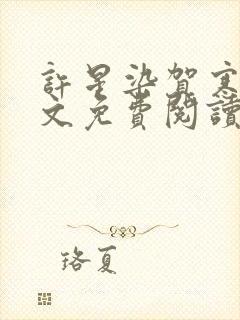 許星染賀寒
文免費閱讀
珞夏